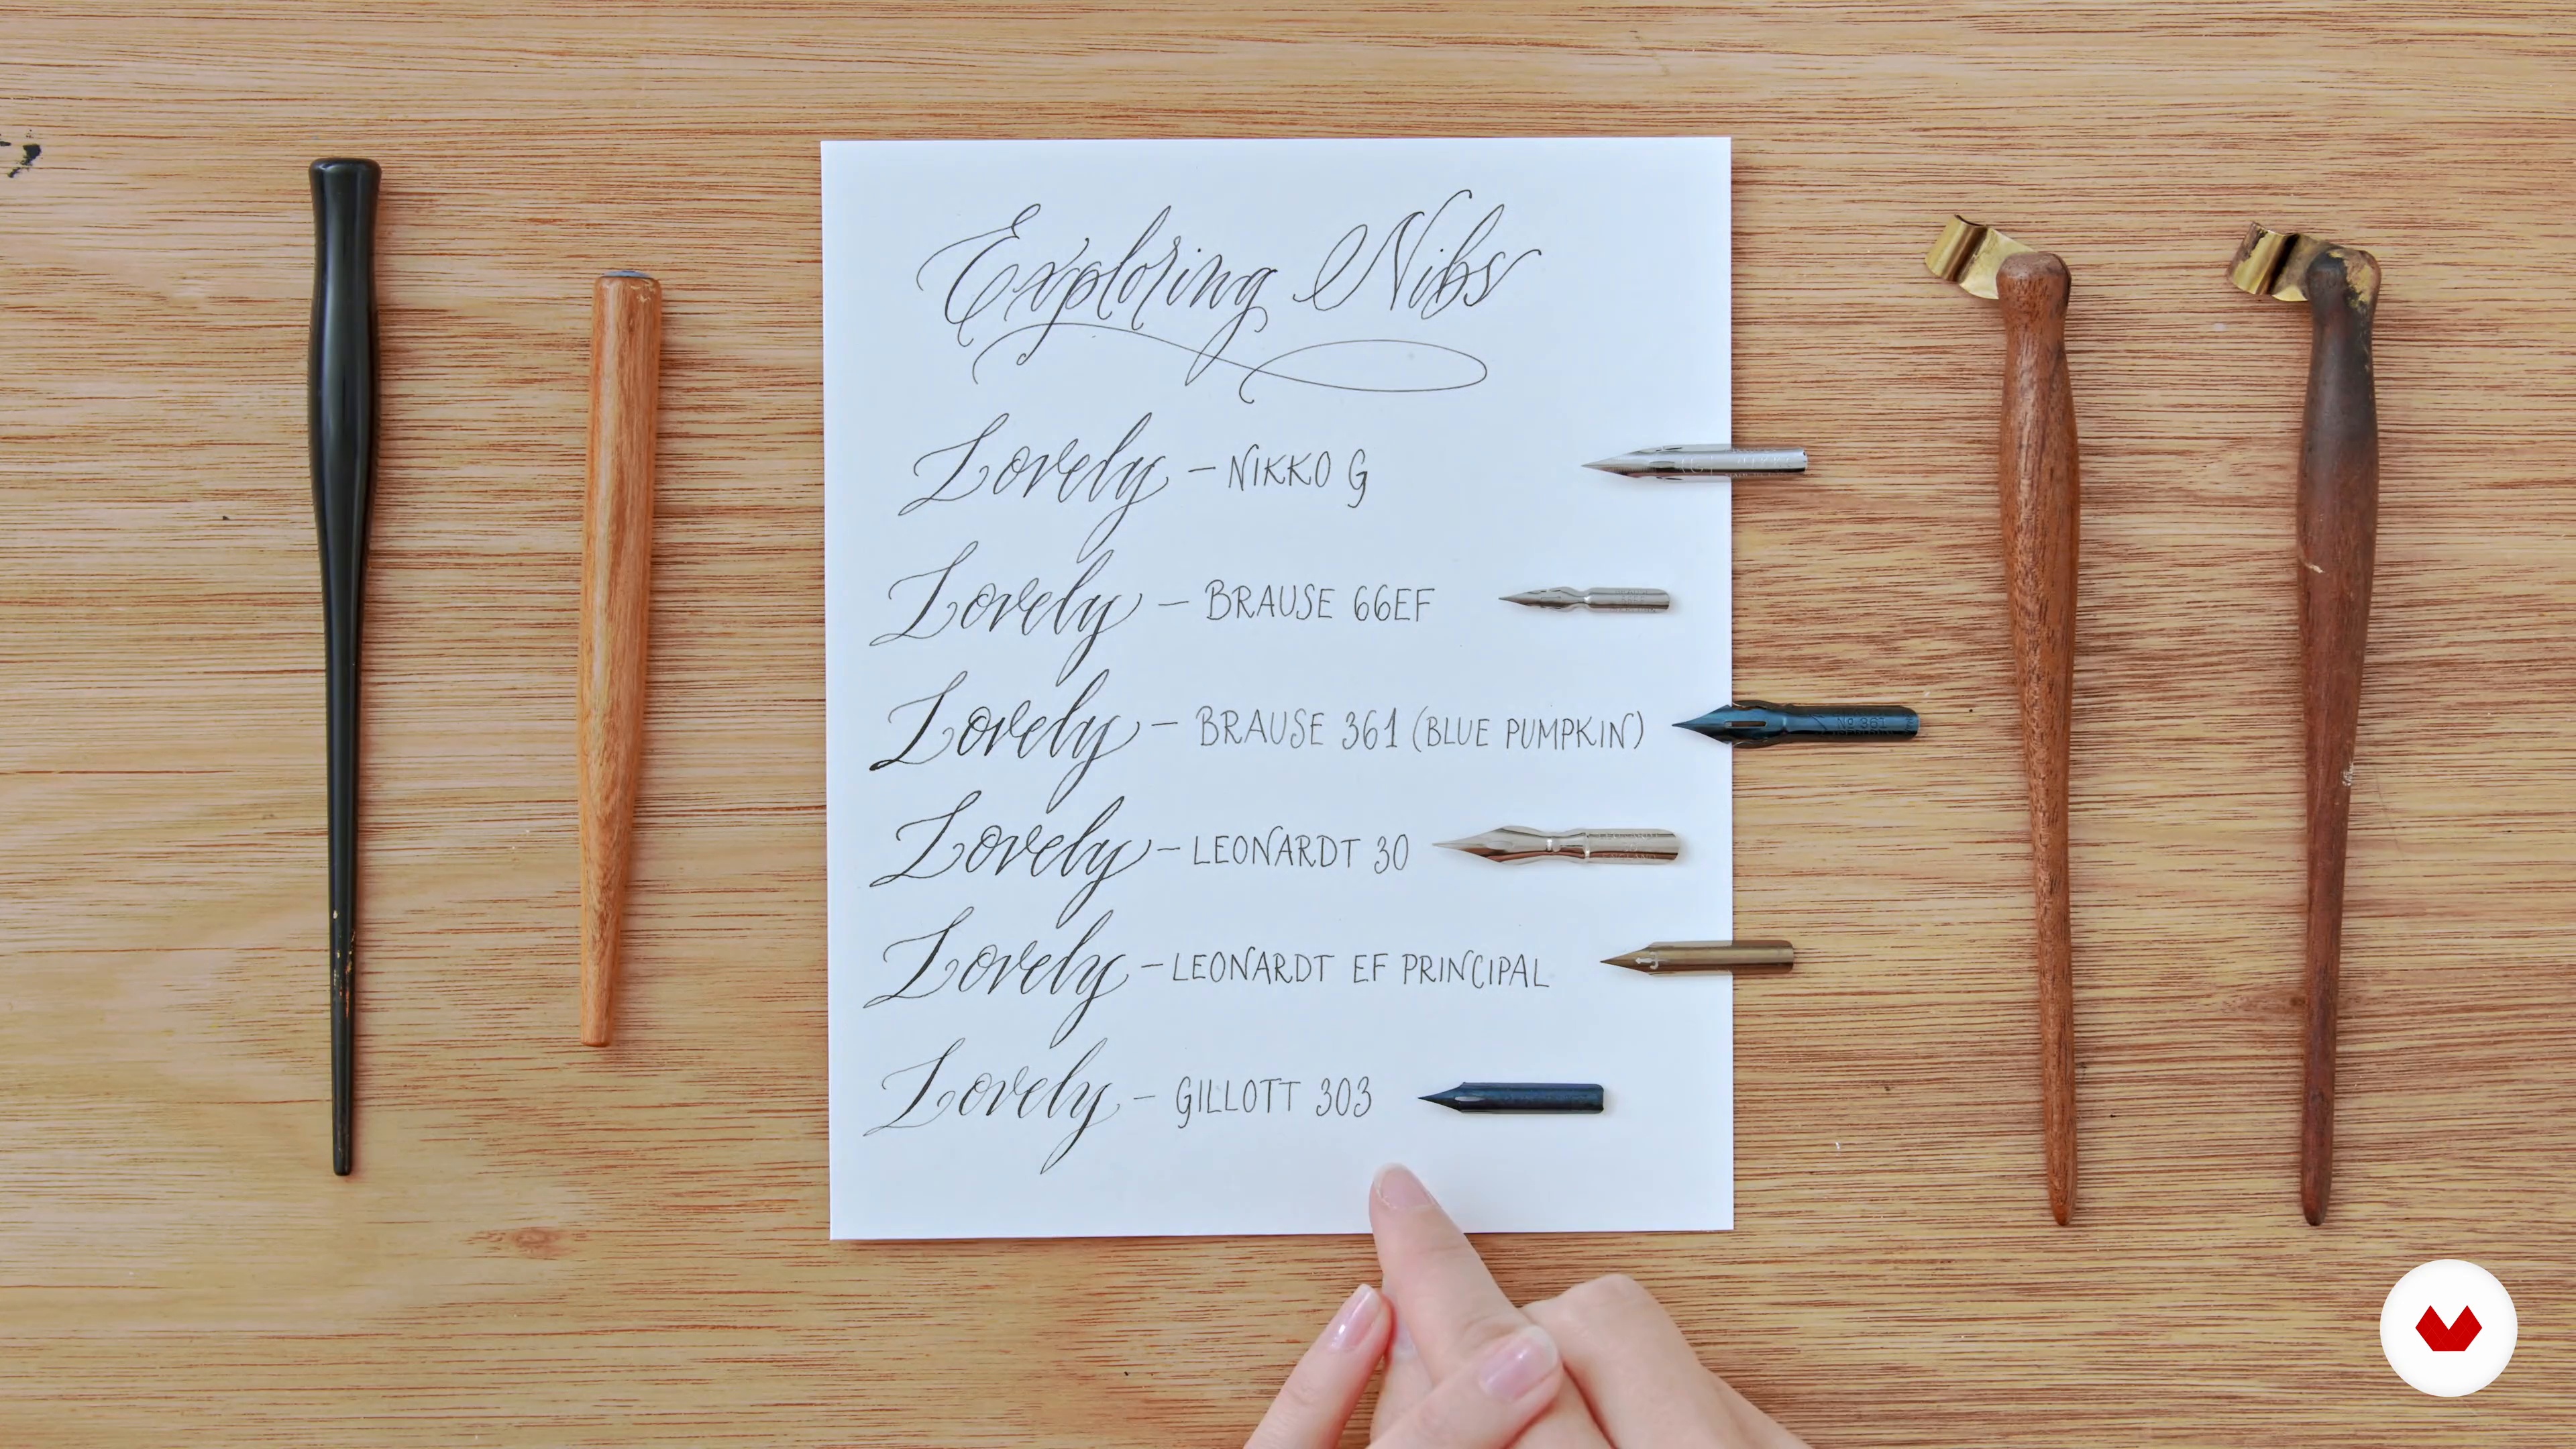 Exploring Nibs
Lovely - NIKKO G
Lovely - BRAUSE 66EF
Lovely - BRAUSE 361 (BLUE PUMPKIN)
No 361
Lovely - LEONARDT 30
Lovely - LEONARDT EF PRINCIPAL
Lovely - GILLOTT 303